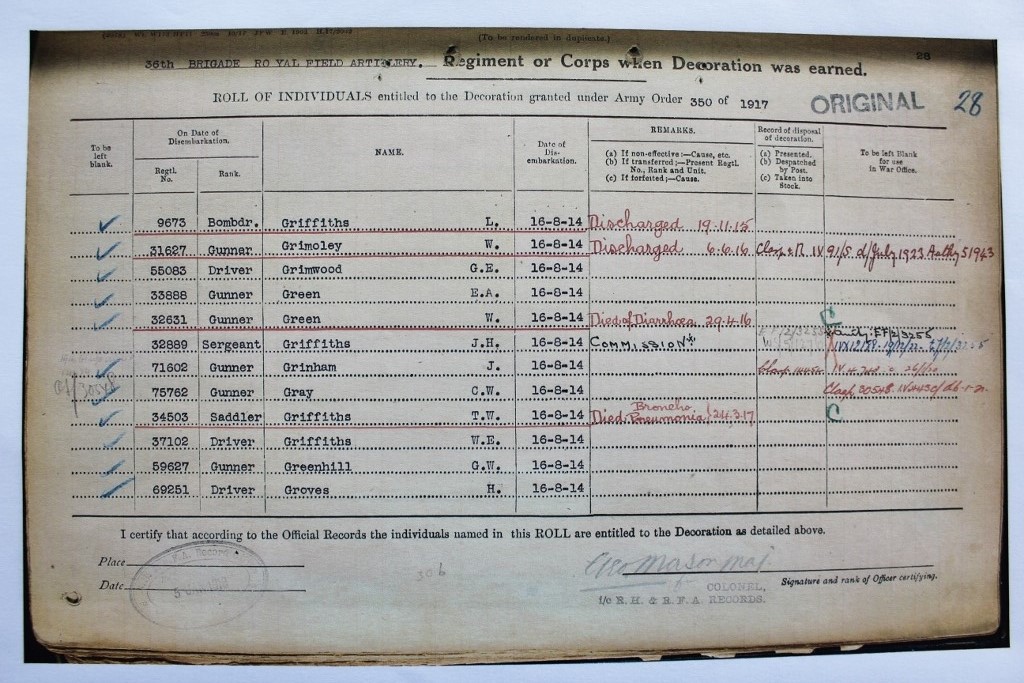 (To be rendered in duplicate.)
36th BRIGADE ROYAL FIELD ARTILLERY. Regiment or Corps when Decoration was earned. 28
ROLL OF INDIVIDUALS entitled to the Decoration granted under Army Order 350 of 1917 ORIGINAL 28
To be left blank.
On Date of Disembarkation.
Regtl. No.
Rank.
NAME.
Date of Dis-embarkation.
REMARKS.
(a) If non-effective:—Cause, etc.
(b) If transferred:—Present Regtl. No., Rank and Unit.
(c) If forfeited:—Cause.
Record of disposal of decoration.
(a) Presented.
(b) Despatched by Post.
(c) Taken into Stock.
To be left Blank for use in War Office.
9673 Bombdr. Griffiths L. 16-8-14 Discharged 19.11.15
31627 Gunner Grimoley W. 16-8-14 Discharged 6.6.16 Clasp & R. IV 91/S d/July 1923
55083 Driver Grimwood G.E. 16-8-14
33888 Gunner Green E.A. 16-8-14
32631 Gunner Green W. 16-8-14 Died of Diarrhoea 29.4.16 C
32889 Sergeant Griffiths J.H. 16-8-14 COMMISSION
71602 Gunner Grinham J. 16-8-14
75762 Gunner Gray C.W. 16-8-14 Clasp 30548
34503 Saddler Griffiths T.W. 16-8-14 Died Broncho Pneumonia 24.3.17 C
37102 Driver Griffiths W.E. 16-8-14
59627 Gunner Greenhill G.W. 16-8-14
69251 Driver Groves H. 16-8-14
I certify that according to the Official Records the individuals named in this ROLL are entitled to the Decoration as detailed above.
Place
Date
306
Geo Mason Maj.
COLONEL,
i/c R.H. & R.F.A RECORDS.
Signature and rank of Officer certifying.